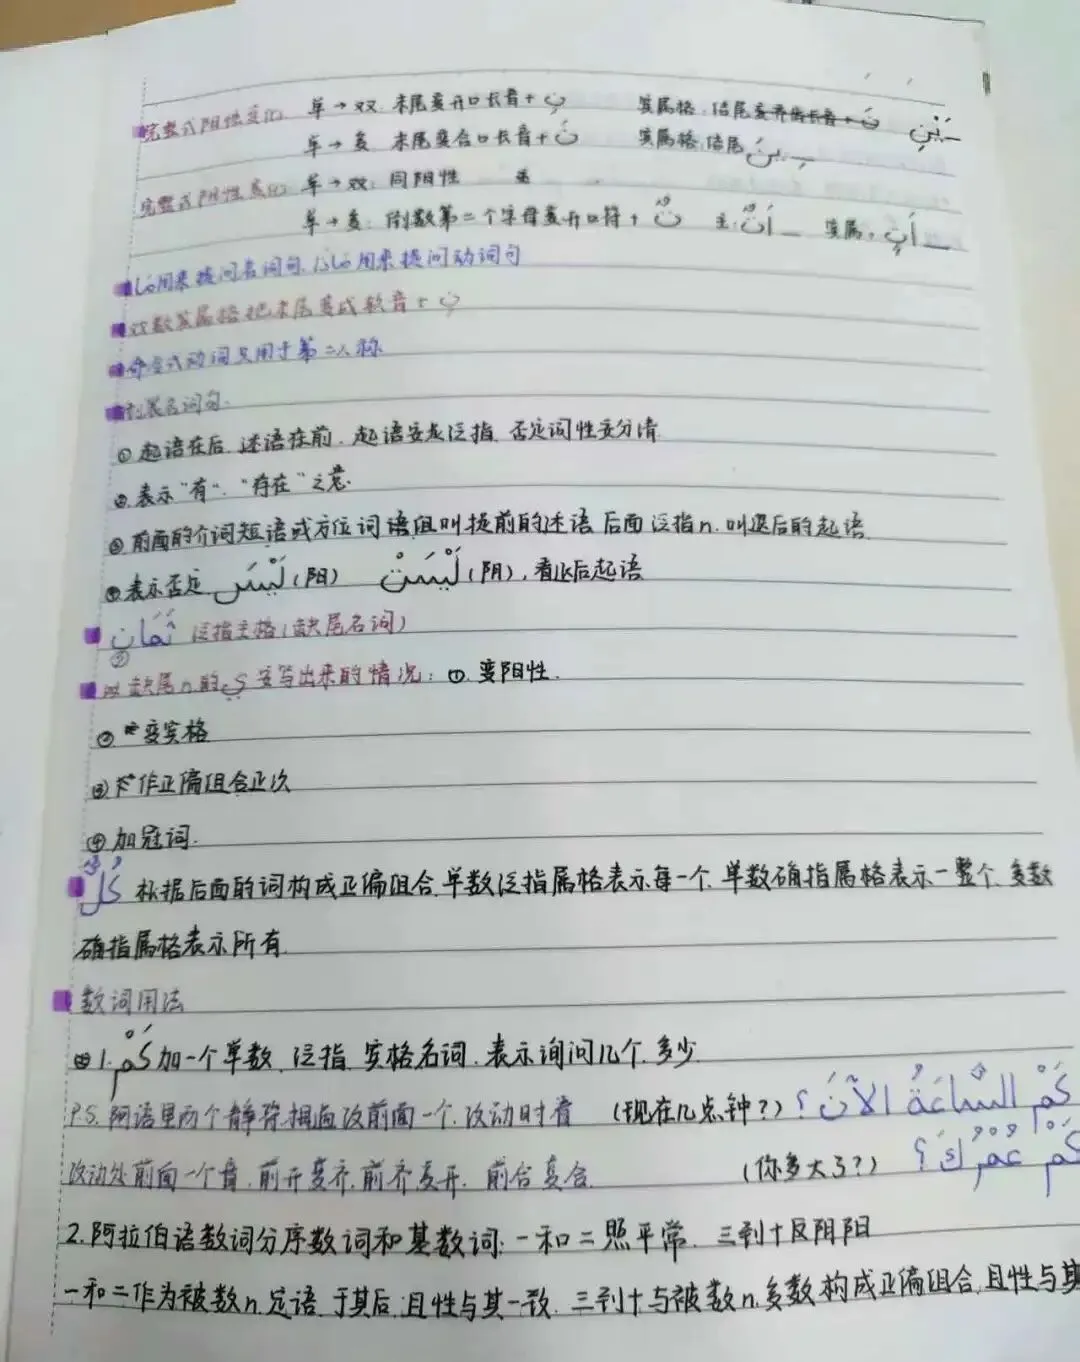 完整式阳性变化 单→双 末尾变开口长音+نِ 宾属格,结尾变齐齿长音+نَ ـَيْنِ
单→多 末尾变合口长音+نَ 宾属格,结尾 ـِينَ
完整式阴性变化 单→双:同阳性
单→多:倒数第二个字母变开口符+ 主: اتٌ 宾属: اتٍ
用来提问名词句, 用来提问动词句
双数宾属格把末尾变成软音+نِ
命令式动词只用于第二人称
扩展名词句.
①起语在后,述语在前.起语要是泛指,否定词性要分清.
②表示“有”、“存在”之意.
③前面的介词短语或方位词语组叫提前的述语,后面泛指n.叫退后的起语
④表示否定 لَيْسَ(阳) لَيْسَتْ(阴),看退后起语
ثَمَانٍ 泛指主格(缺尾名词)
缺尾n的ي要写出来的情况:①变阳性.
②变宾格
③作正偏组合正次
④加冠词.
كُلّ 根据后面的词构成正偏组合.单数泛指属格表示每一个.单数确指属格表示一整个.多数
确指属格表示所有.
数词用法
1.كَمْ加一个单数、泛指、宾格名词.表示询问几个、多少
P.S.阿语里两个静符相遇改前面一个.改动时看 (现在几点钟?) كَمِ السَّاعَةُ الآنَ؟
改动处前面一个音.前开变齐.前齐变开.前合变合. (你多大了?) كَمْ عُمْرُكَ؟
2.阿拉伯语数词分序数词和基数词:一和二照平常.三到十反阴阳
一和二作为被数n.定语.于其后,且性与其一致.三到十与被数n.多数构成正偏组合,且性与其